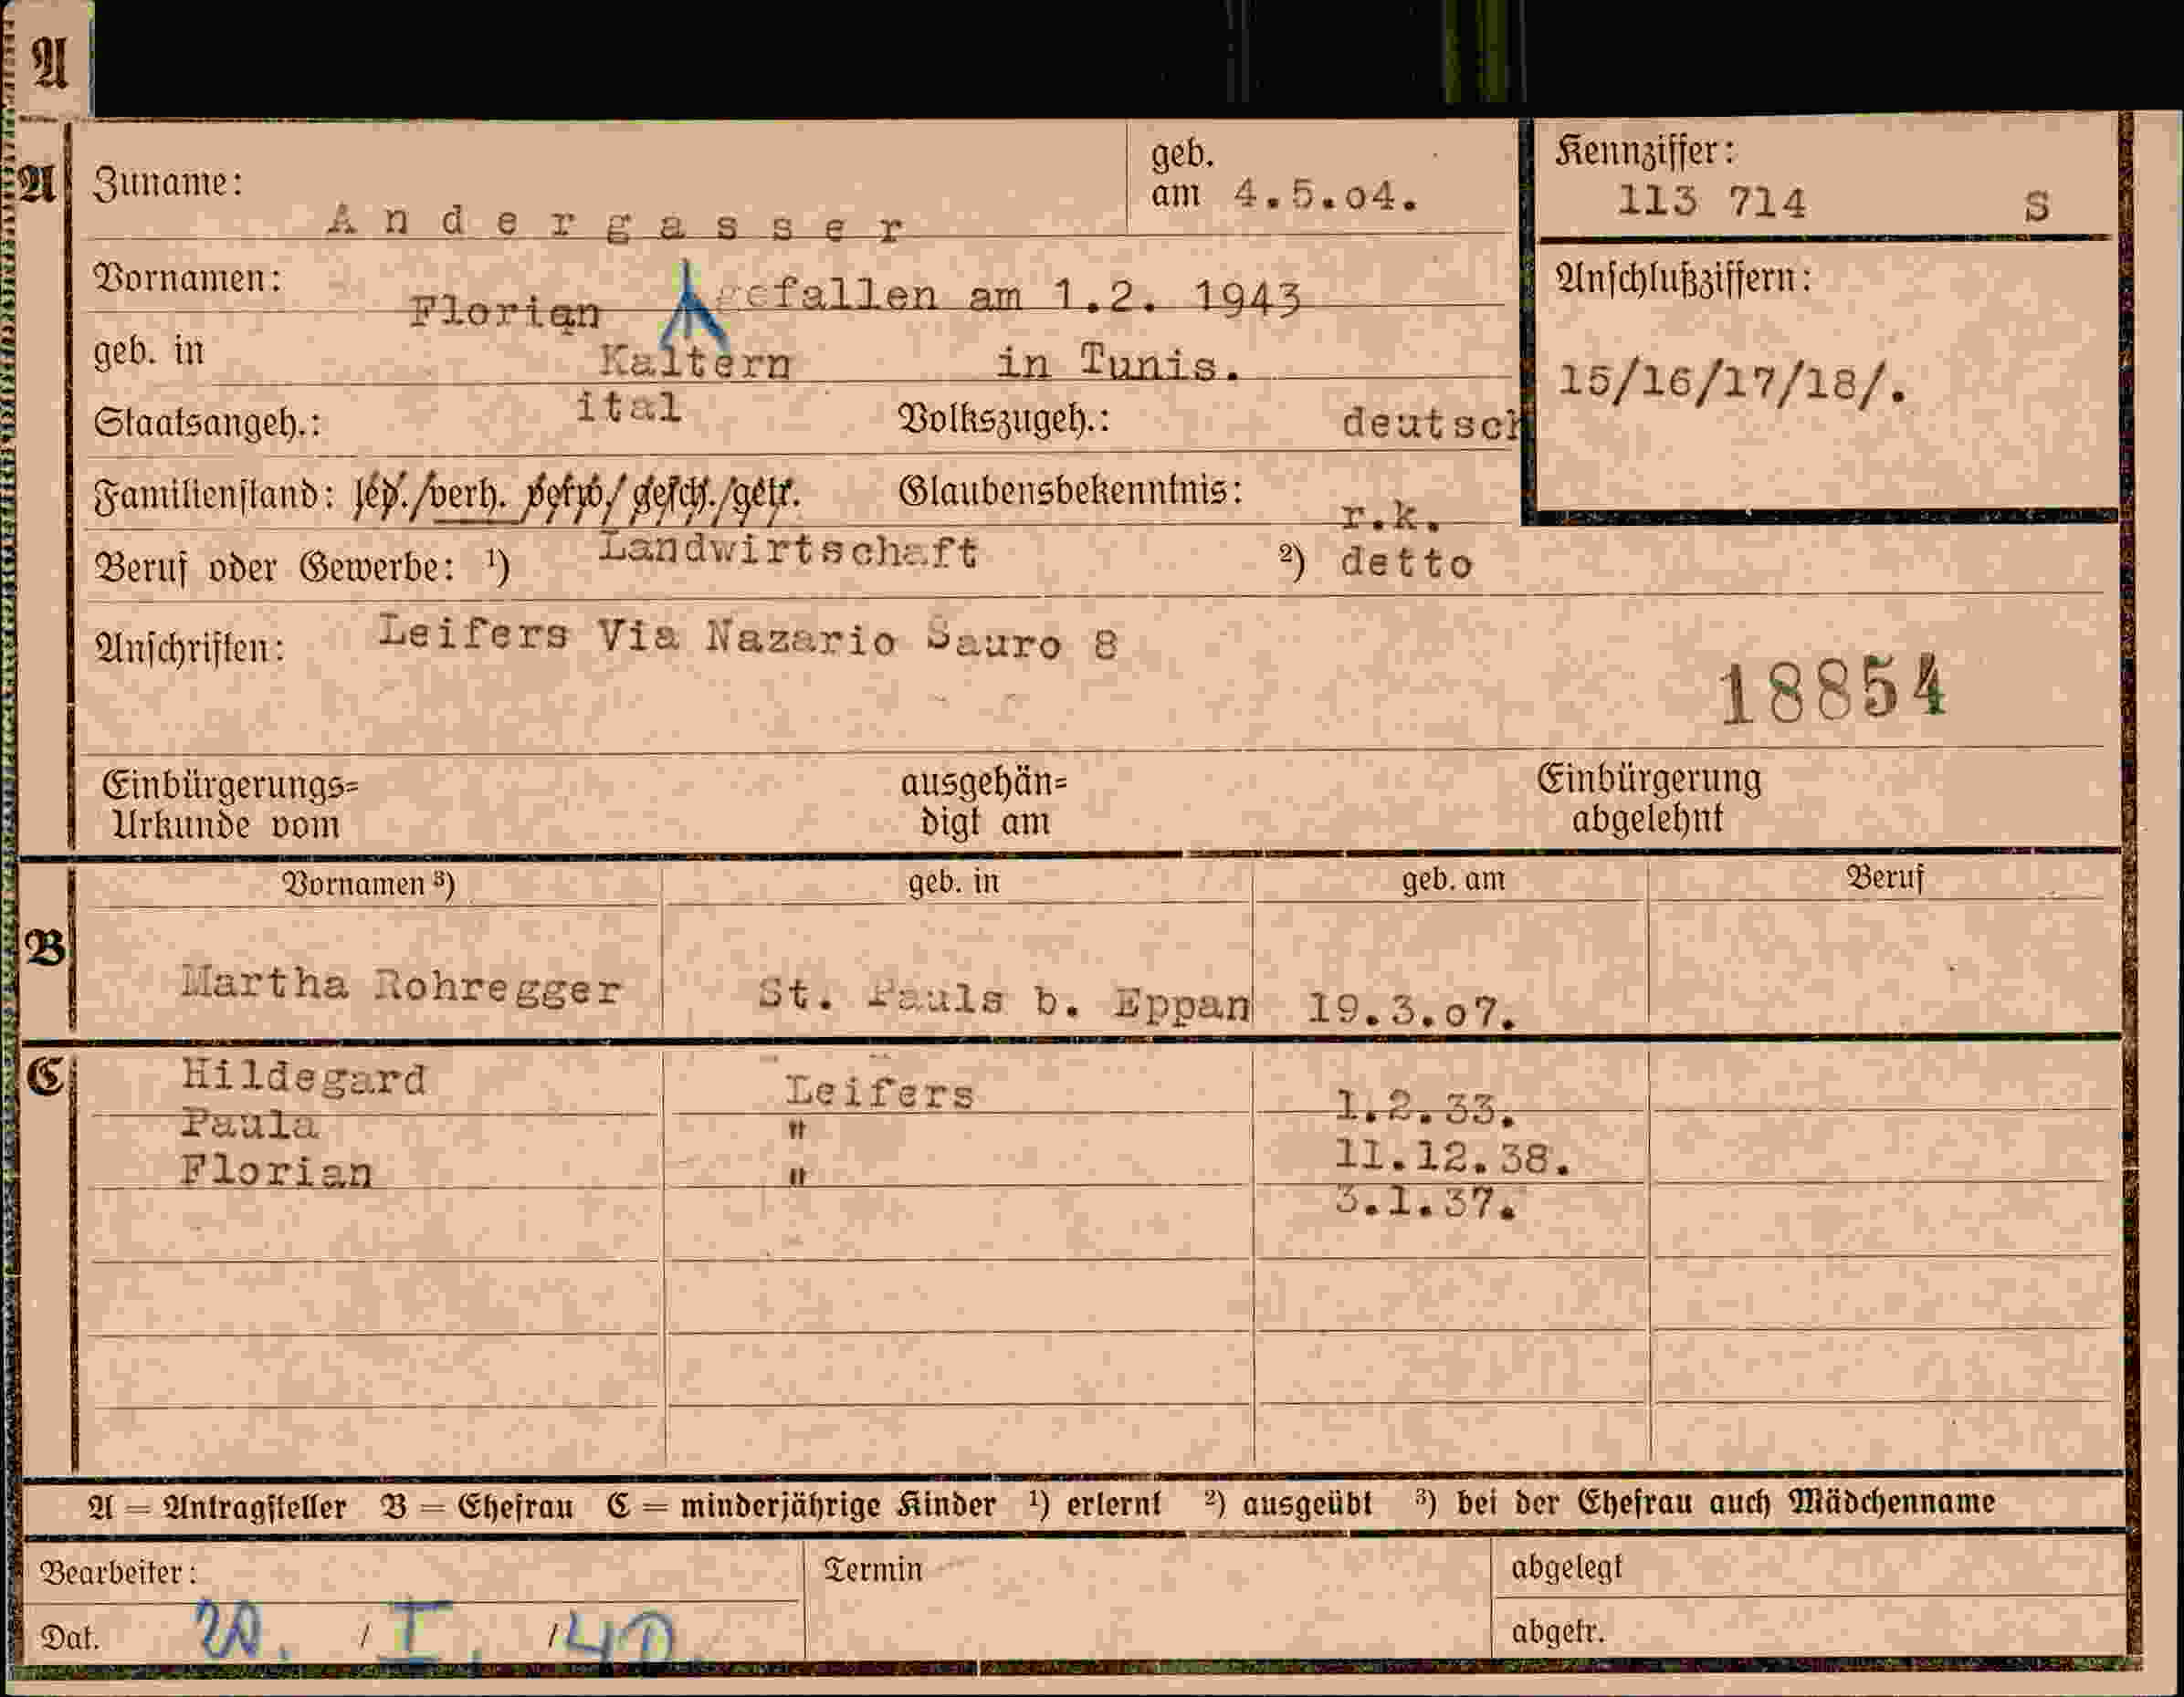 A
A
Zuname: Andergasser
geb. am 4.5.04.
Kennziffer:
113 714 S
Vornamen: Florian gefallen am 1.2. 1943
Anschlußziffern:
geb. in Kaltern in Tunis.
15/16/17/18/.
Staatsangeh.: ital Volkszugeh.: deutsch
Familienstand: led./verh. verw./gesch./getr. Glaubensbekenntnis: r.k.
Beruf oder Gewerbe: ¹) Landwirtschaft ²) detto
Anschriften: Leifers Via Nazario Sauro 8
18854
Einbürgerungs=
Urkunde vom
ausgehän=
digt am
Einbürgerung
abgelehnt
Vornamen ³) geb. in geb. am Beruf
B
Martha Rohregger St. Pauls b. Eppan 19.3.07.
C
Hildegard Leifers 1.2.33.
Paula " 11.12.38.
Florian " 3.1.37.
A = Antragsteller B = Ehefrau C = minderjährige Kinder ¹) erlernt ²) ausgeübt ³) bei der Ehefrau auch Mädchenname
Bearbeiter: Termin abgelegt
Dat. 20. / I. /40. abgetr.